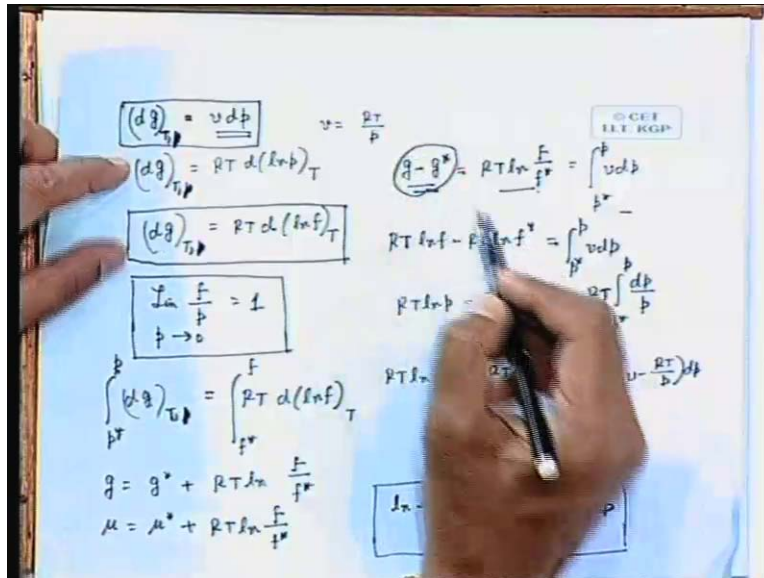 (dg)_{T,p} = vdp
v = RT/p
© CET
I.I.T. KGP
(dg)_{T,p} = RT d(lnp)_T
(dg)_{T,p} = RT d(lnf)_T
Lim_{p→0} f/p = 1
∫_{p*}^{p} (dg)_{T,p} = ∫_{f*}^{f} RT d(lnf)_T
g = g* + RT ln f/f*
μ = μ* + RT ln f/f*
g - g* = RT ln f/f* = ∫_{p*}^{p} vdp
RT lnf - R lnf* = ∫_{p*}^{p} vdp
RT lnp = RT ∫^{p} dp/p
RT ln RT v - RT/p)dp
ln p